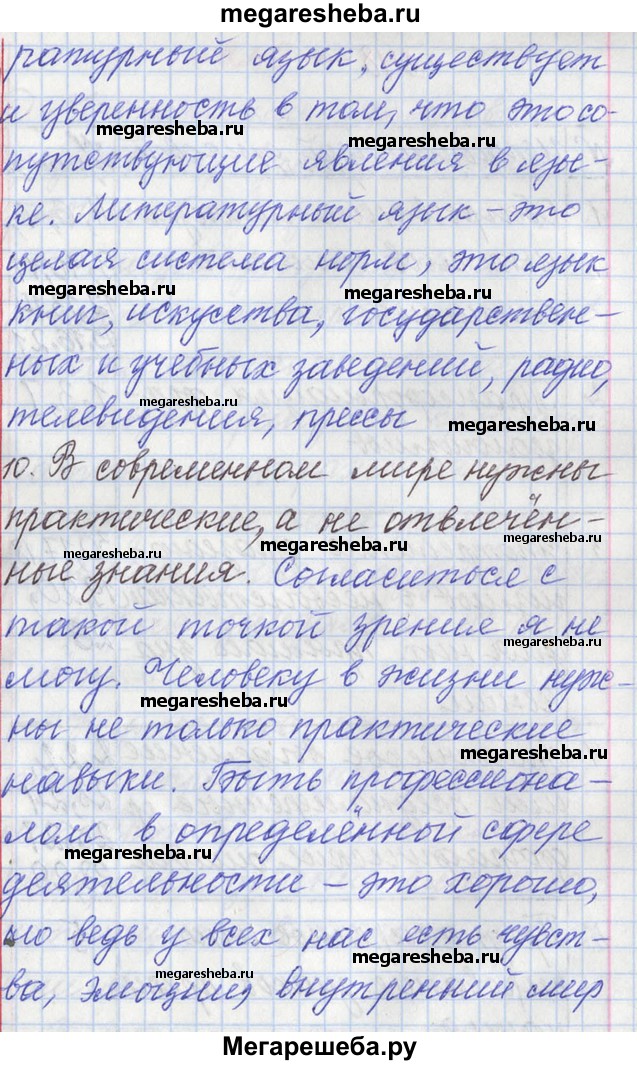 megaresheba.ru
ратурный язык, существует
и уверенность в том, что это со-
megaresheba.ru megaresheba.ru
путствующие явления в язы-
ке. Литературный язык – это
целая система норм, это язык
megaresheba.ru megaresheba.ru
книг, искусства, государствен-
ных и учебных заведений, радио,
megaresheba.ru
телевидения, прессы
megaresheba.ru
10. В современном мире нужны
практические, а не отвлечён-
megaresheba.ru megaresheba.ru megaresheba.ru
ные знания. Согласиться с
такой точкой зрения я не
megaresheba.ru
могу. Человеку в жизни нуж-
megaresheba.ru
ны не только практические
megaresheba.ru
навыки. Быть профессиона-
лом в определённой сфере
megaresheba.ru
деятельности – это хорошо,
но ведь у всех нас есть чувст-
megaresheba.ru megaresheba.ru
ва, эмоции, внутренний мир
Мегарешеба.ру